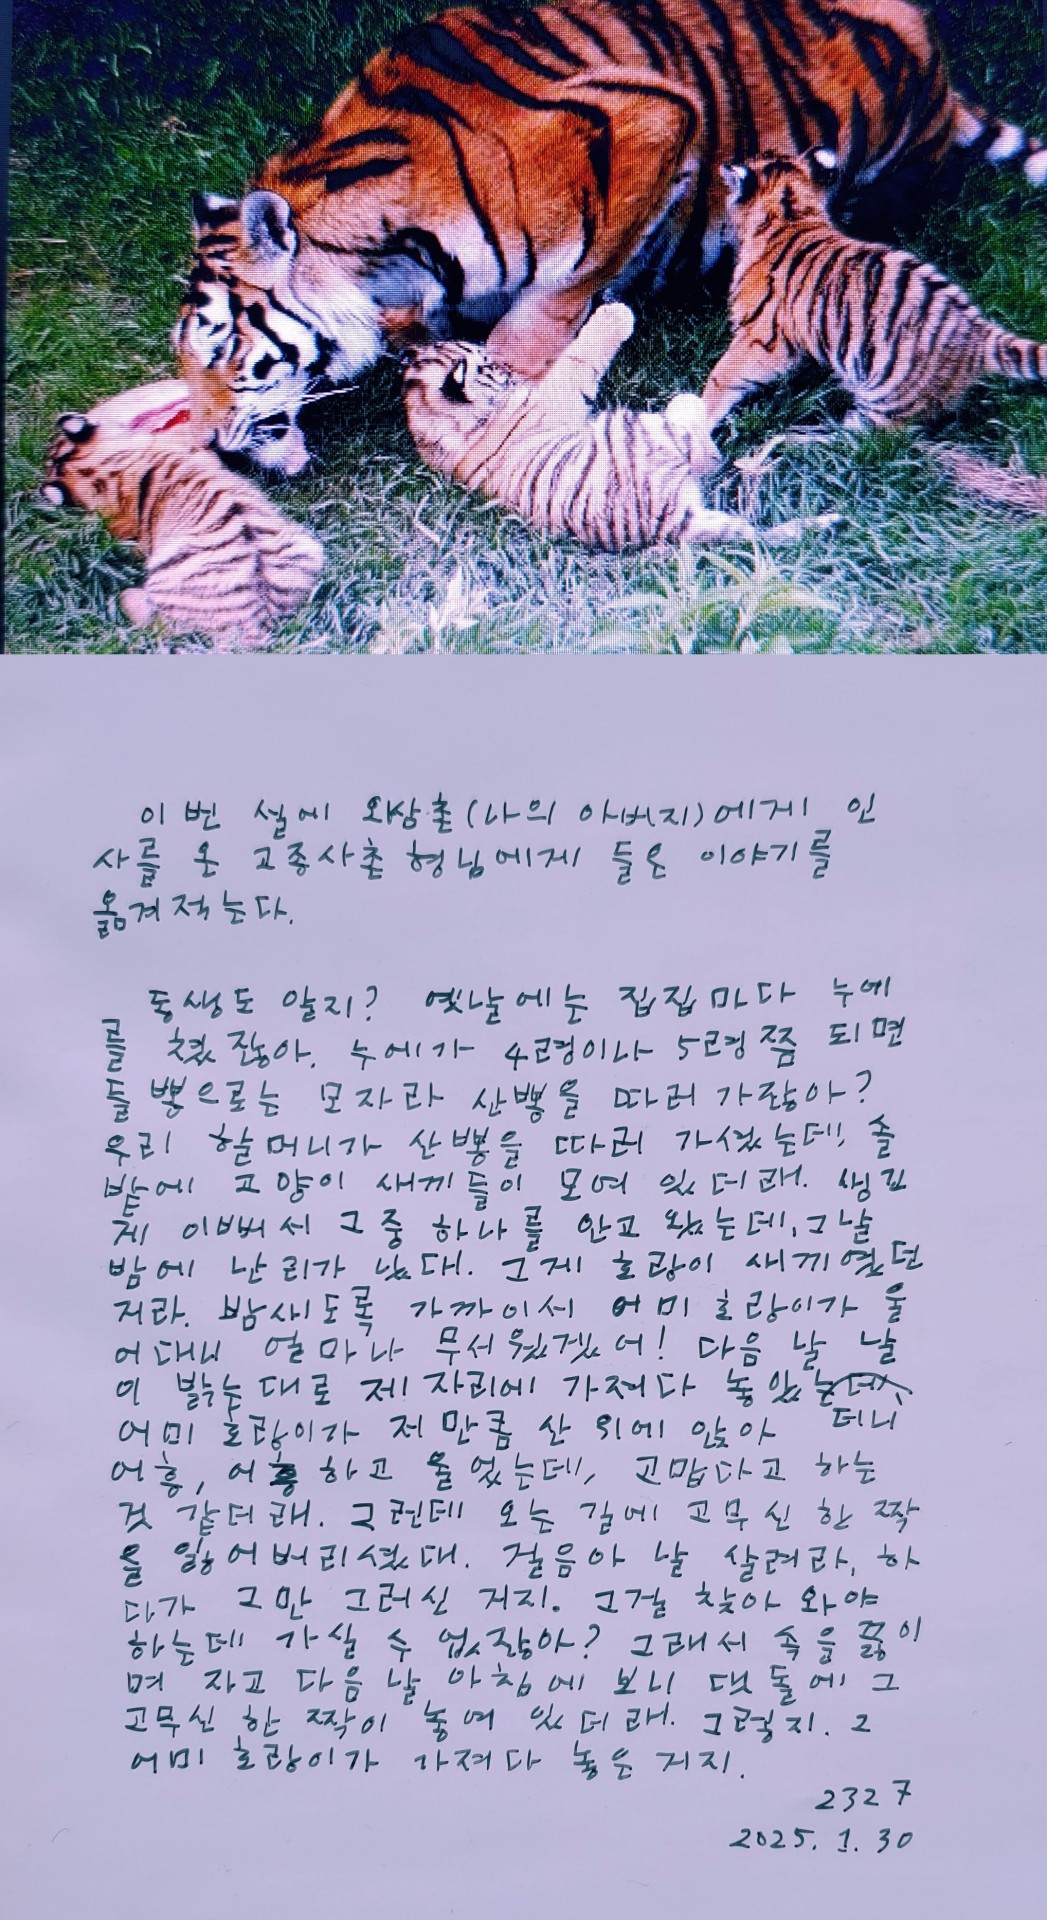 이번 설에 외삼촌(나의 아버지)에게 인
사를 온 고종사촌형님에게 들은 이야기를
옮겨 적는다.
동생도 알지? 옛날에는 집집마다 누에
를 쳤잖아. 누에가 4령이나 5령쯤 되면
들뽕으로는 모자라 산뽕을 따러 가잖아?
우리 할머니가 산뽕을 따러 가셨는데, 솔
밭에 고양이 새끼들이 모여 있더래. 생김
게 이뻐서 그중 하나를 안고 왔는데, 그날
밤에 난리가 났대. 그게 호랑이 새끼였던
거라. 밤새도록 가까이서 어미 호랑이가 울
어대니 얼마나 무서웠겠어! 다음 날 날
이 밝는대로 제자리에 가져다 놓았는데
어미 호랑이가 저만큼 산 위에 앉아 더니
어흥, 어흥 하고 울었는데, 고맙다고 하는
것 같더래. 그런데 오는 길에 고무신 한 짝
을 잃어버리셨대. 걸음아 날 살려라, 하
다가 그만 그러신 거지. 그걸 찾아 와야
하는데 가실 수 없잖아? 그래서 속을 끓이
며 자고 다음 날 아침에 보니 댓돌에 그
고무신 한 짝이 놓여 있더래. 그렇지. 그
어미 호랑이가 가져다 놓은 거지.
2327
2025. 1. 30